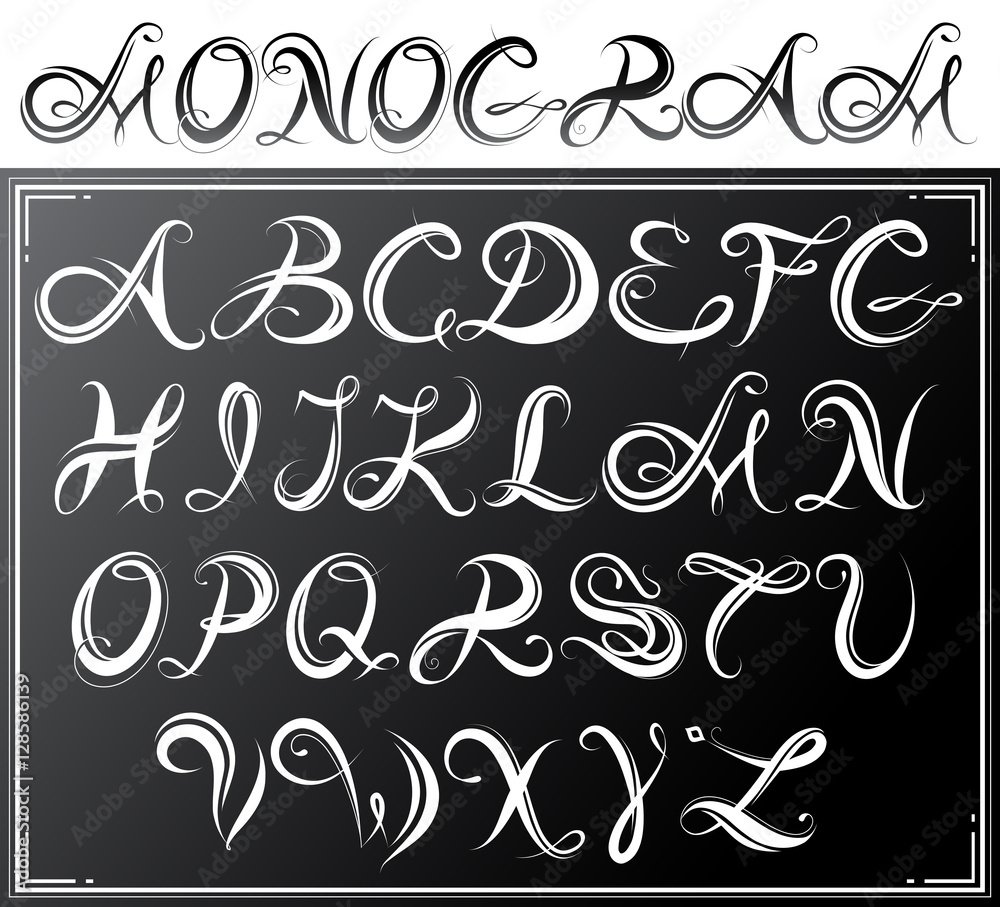 MONOGRAM
ABCDEFG
HIJKLMN
OPQRSTU
VWXYZ
Adobe Stock | #128586139